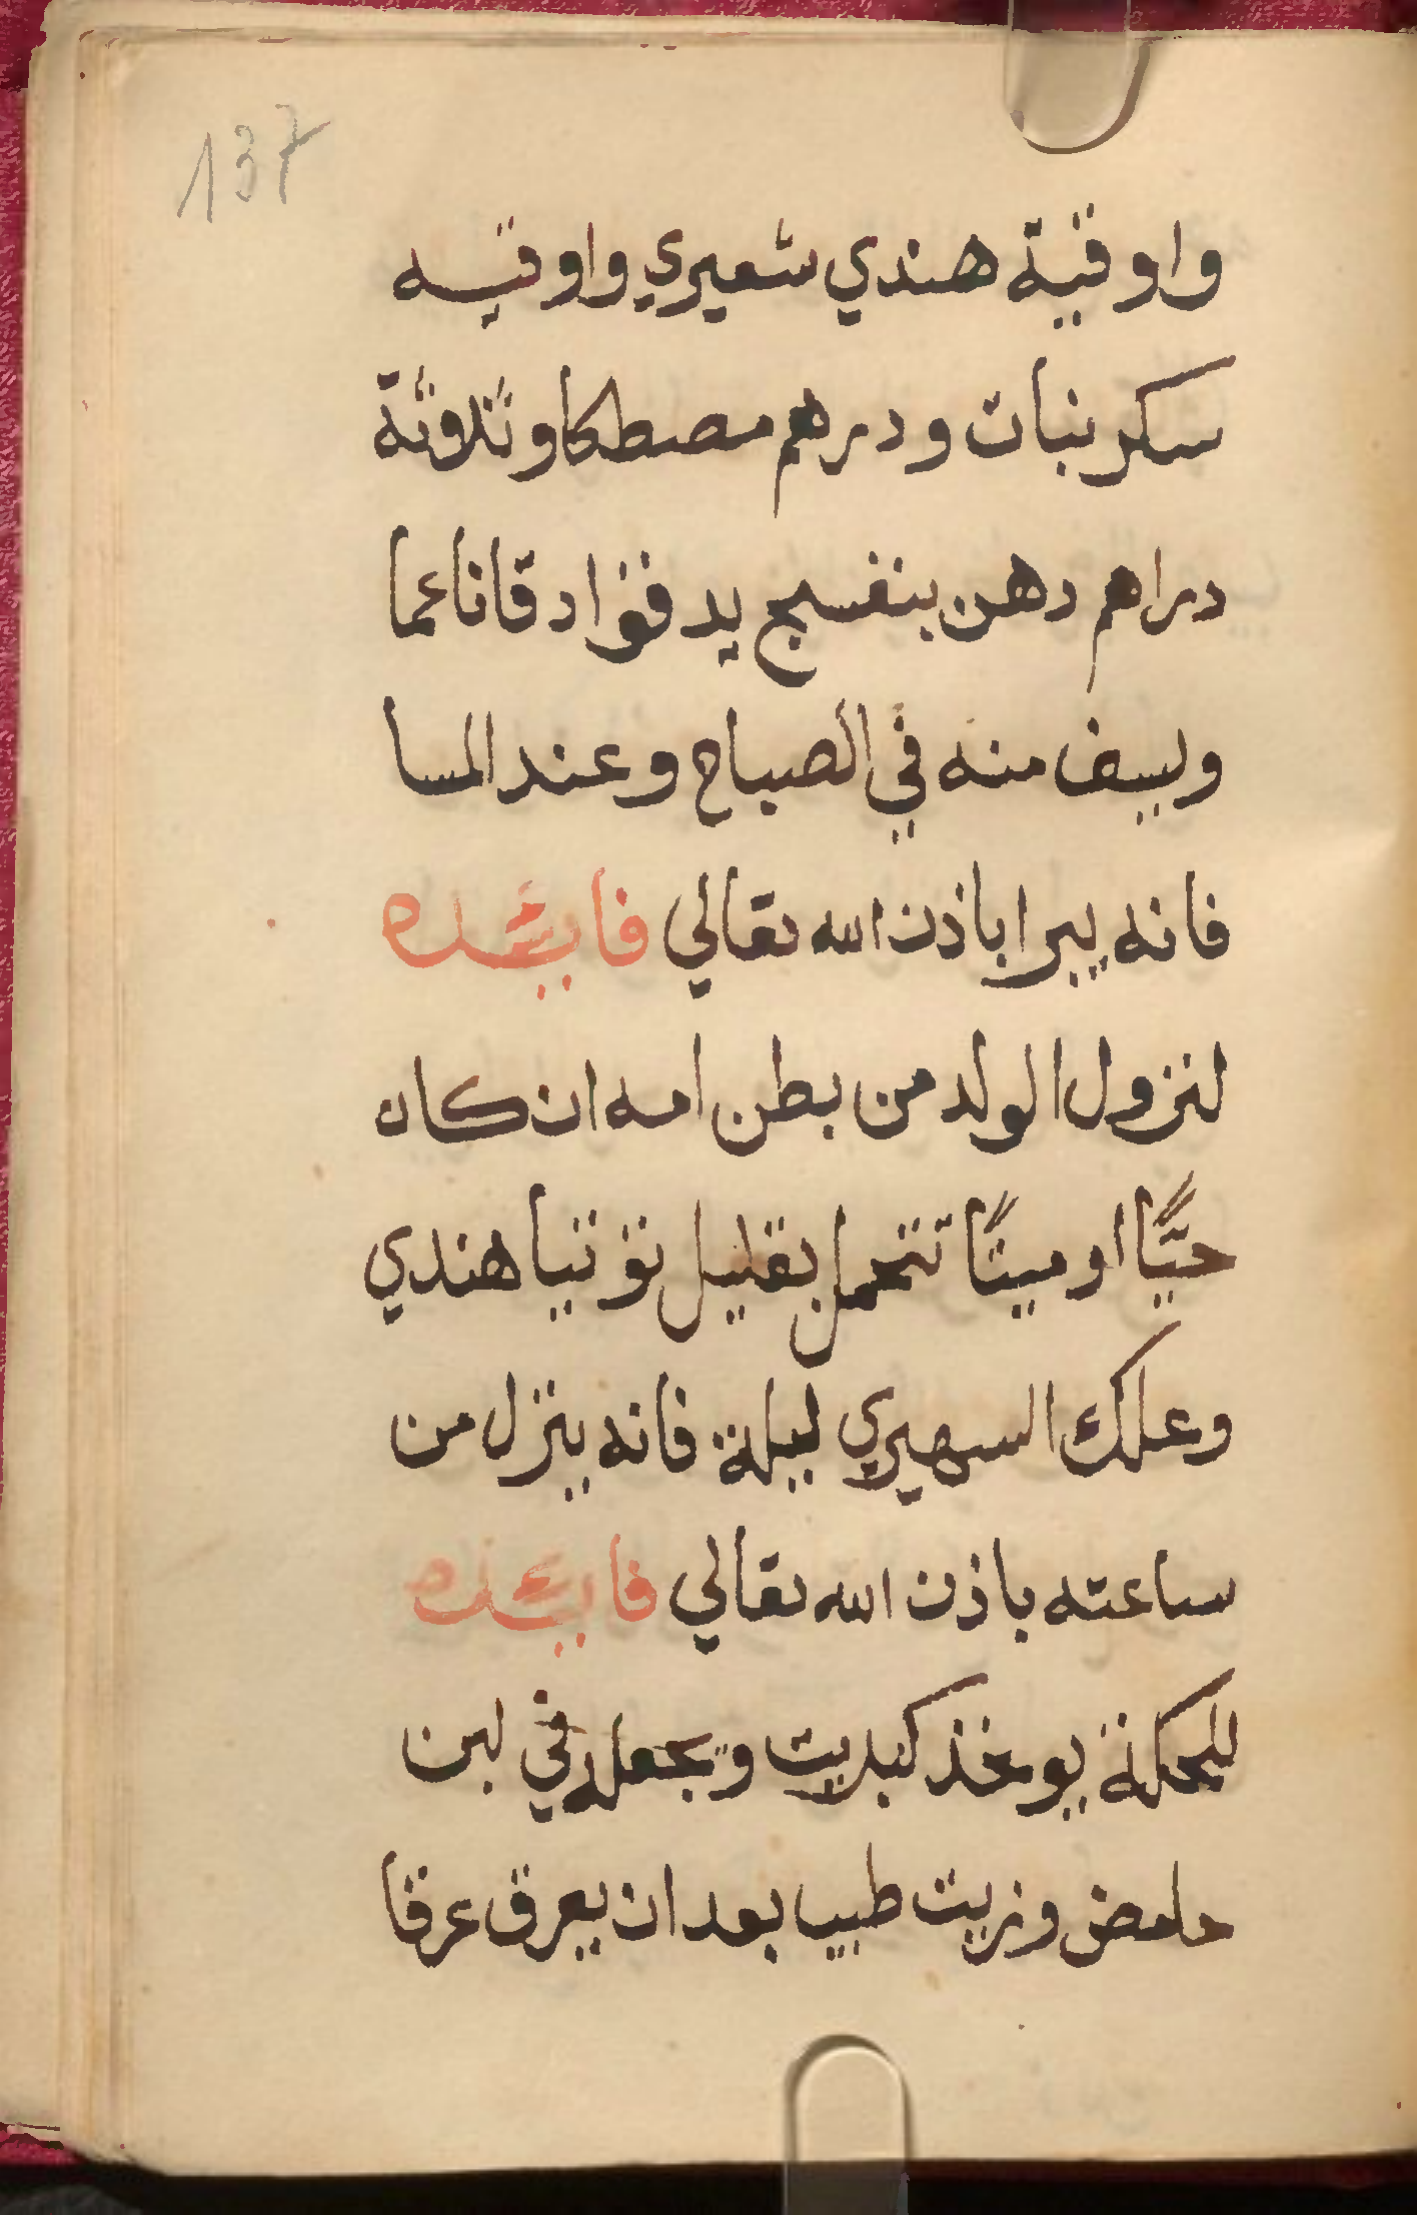 137
واوقية هندي شعيري واوقيه
سكر نبات ودرهم مصطكا وثلاوثة
دراهم دهن بنفسج يدقوا دقا ناعما
ويسف منه في الصباح وعند المسا
فانه يبرا باذن الله تعالي فايده
لنزول الولد من بطن امه ان كان
حيًّا او ميتًا تتحمل بقليل توتيا هندي
وعلك السهيري ليلة فانه ينزل من
ساعته باذن الله تعالي فايده
للحكة يوخذ كبريت ويجعله في لبن
حامض وزيت طيب بعد ان يعرق عرقا